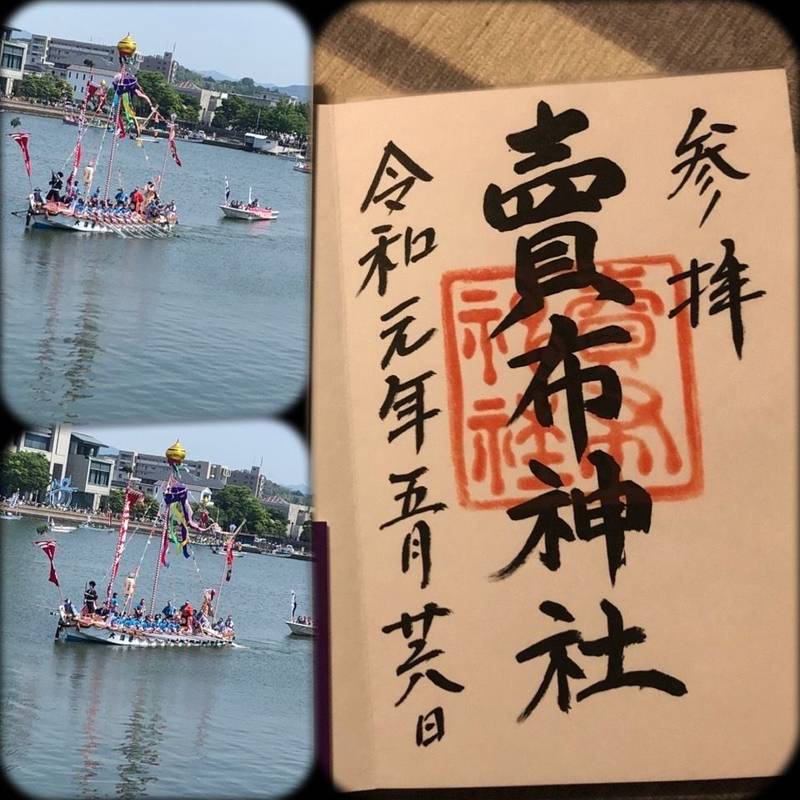 参拝
賣布神社
令和元年五月廿六日
賣布
神社